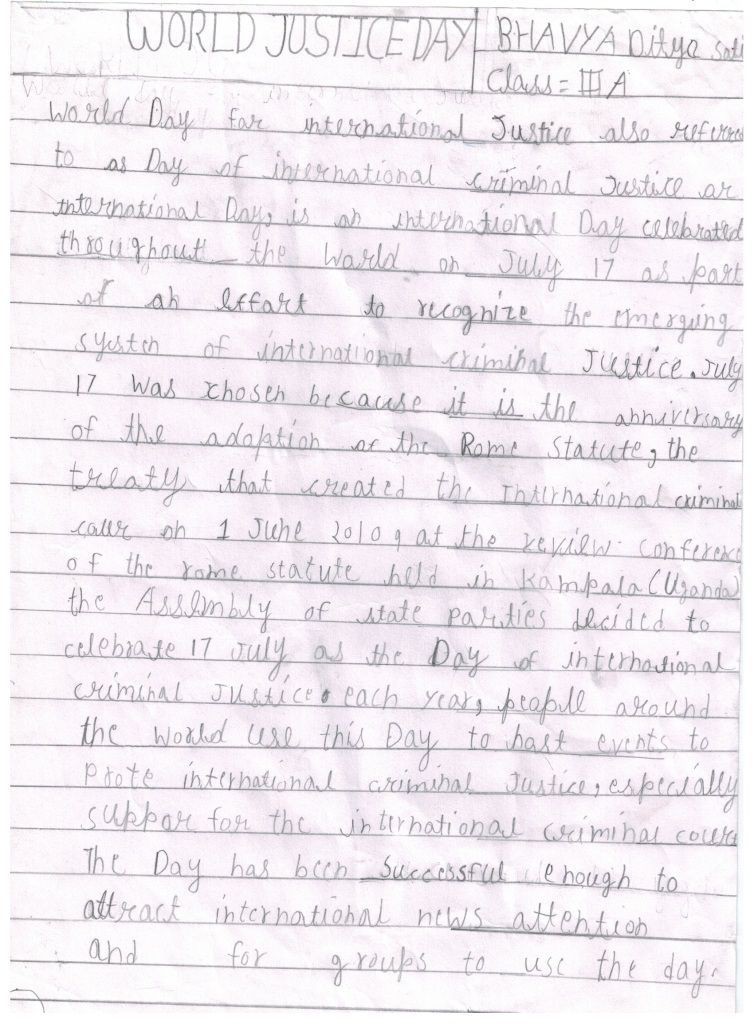 WORLD JUSTICE DAY
BHAVYA Ditya Sati
Class = III A
World Day for international Justice also referred
to as Day of international criminal Justice or
International Day, is an international Day celebrated
throughout the World on July 17 as part
of an effort to recognize the emerging
system of international criminal Justice. July
17 Was chosen because it is the anniversary
of the adoption of the Rome Statute, the
treaty that created the International criminal
cour on 1 June 2010, at the review conference
of the rome statute held in Kampala (Uganda)
the Assembly of state parties decided to
celebrate 17 July as the Day of international
criminal Justice. each year, people around
the world use this Day to host events to
prote international criminal Justice, especially
suppor for the international criminal court
The Day has been Successful enough to
attract international news attention
and for groups to use the day.